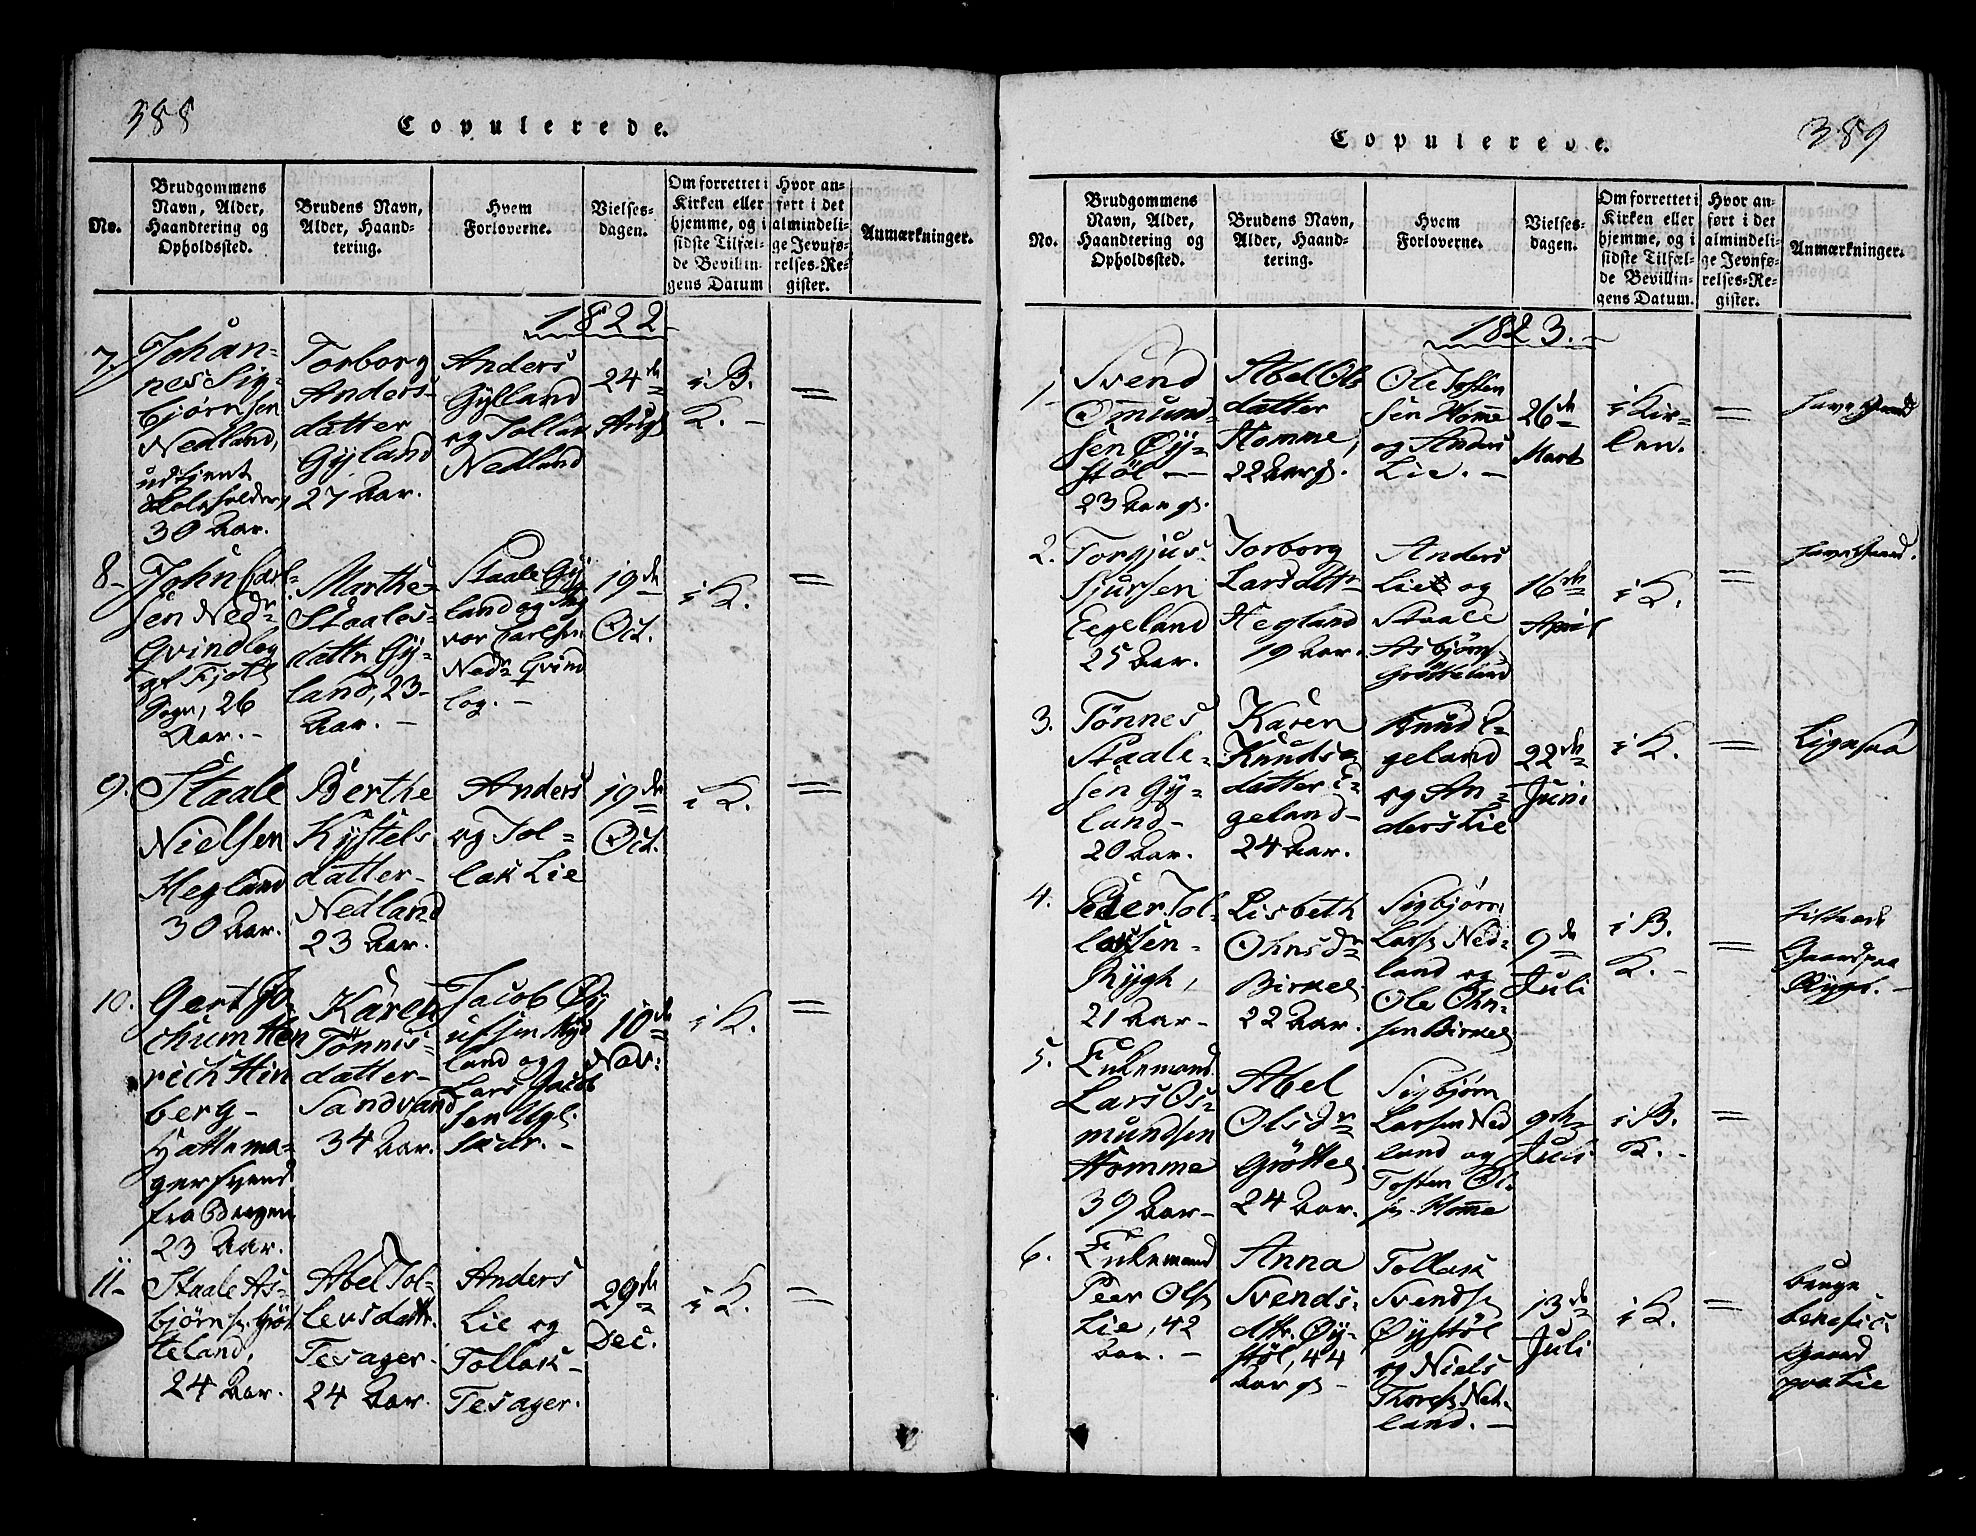 388
Copulerede.
No.
Brudgommens
Navn, Alder,
Haandtering og
Opholdssted.
Brudens Navn,
Alder, Haand-
tering.
Hvem
Forloverne.
Vielses-
dagen.
Om forrettet i
Kirken eller
hjemme, og i
sidste Tilfæl-
de Bevillin-
gens Datum
Hvor an-
ført i det
almindeli-
ge Jevnfø-
relses-Re-
gister.
Anmærkninger.
1822
7.
Johan-
nes Sig-
bjørnsen
Nedland,
udtjent
30 Aar.
Torborg
Anders-
datter
Gyland
27 Aar.
Anders
Gylland
og Tollak
Nedland
24de
Aug
i B.
K. -
=
8-
John Carl-
sen Nedr
Qvindlog
af Fjotl
Sogn, 26
Aar. -
Marthe
Staales-
dattr Gy-
land, 23-
Aar. -
Staale Gy-
land og
vor Carlsen
Nedr Qvind
log. -
19de
Oct.
i K.
=
9.
Staale
Nielsen
Hegland
30 Aar.
Berthe
Kystels
datter-
Nedland
23 Aar.
Anders
og Tol=
lak Lie
19de
Oct.
i K.
=
10.
Gert Jo
chum Hen
rich Hin
berg-
Hattema-
gersvend
fra Bergen
23 Aar.
Karen
Tønnis-
datter-
Sandvand
34 Aar.
Jacob Øy
ufsen
land og
Lars Jacob
sen
10de
Nov:
i K.
=
11-
Staale As-
bjørns. Grøt
teland,
24 Aar.
Abel Tol-
levsdattr.
Tesager-
24 Aar.
Anders
Lie og
Tollak-
Tesager.
29de
Dec.
i K.
=
389
Copulerede.
No.
Brudgommens
Navn, Alder,
Haandtering og
Opholdssted.
Brudens Navn,
Alder, Haand-
tering.
Hvem
Forloverne.
Vielses-
dagen.
Om forrettet i
Kirken eller
hjemme, og i
sidste Tilfæl-
de Bevillin-
gens Datum.
Hvor an-
ført i det
almindeli-
ge Jevnfø-
relses-Re-
gister.
Anmærkninger.
1823.-
1.
Svend
Omund-
sen Øy-
støl -
23 Aar gl.
Abel Ols
datter
Homme,
22 Aar gl.
Ole Tosten
sen Homme
og Anders
Lie. -
26de
Marts
i Kir-
ken.
=
have Gaard
2.
Torgjus
Sjursen
Eegeland
25 Aar.
Torborg
Larsdattr-
Hegland
19 Aar.
Anders
Lie og
Staale
Asbjørns
Grøtteland
16de
April
i K.
=
have Gaard.
3.
Tønnes
Staale-
sen Gy-
land-
20 Aar.
Karen
Knuds
datter E-
geland-
24 Aar.
Knud E-
geland
og An-
ders Lie
22de
Juni
i K.
=
Ligesaa
4.
Peder Tol-
laksen-
Rygh,
21 Aar-
Lisbeth
Ohnsdr
Birkel.
22 Aar.
Sigbjørn
Lars. Ned-
land og
Ole Ohn-
sen Birkel
9de
Juli
i B.
K. -
=
Gaardpaa
Rygh. -
5.
Enkemand
Lars Os-
mundsen
Homme
39 Aar-
Abel
Olsdr
Grøttel.
24 Aar.
Sigbjørn
Larsen Ned
land og
Tosten Ol-
s. Homme
9de
Juli
i B.
K. -
=
6.
Enkemand
Peer Ols.
Lie, 42
Aar. -
Anna
Svends-
dtr. Øy-
støl, 44
Aar gl -
Tollak
Svends.
Øystøl
og Niels
Thores. Ned-
land. -
13de
Juli
i K.
=
bruge
benefic.
Gaard
paa Lie